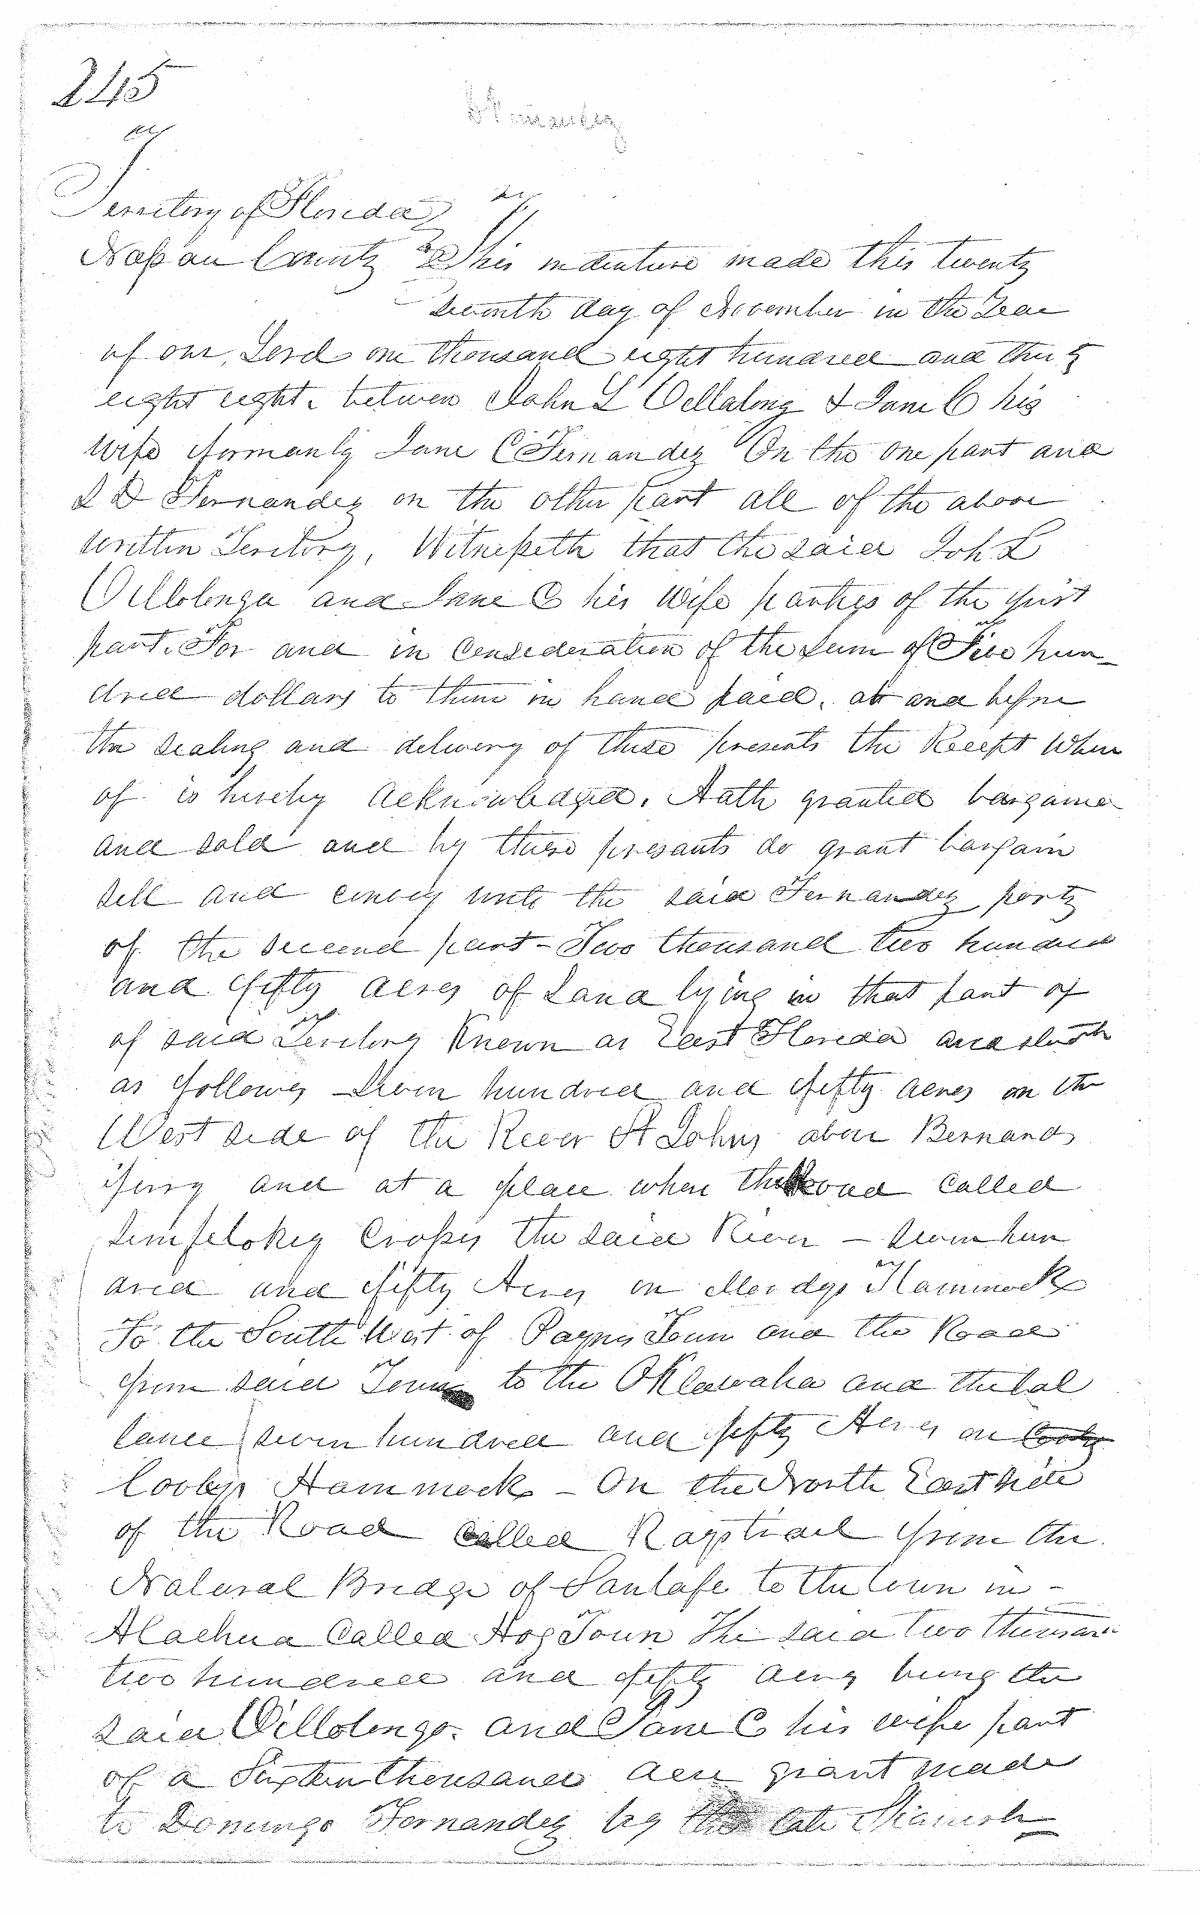 245
Fernandez
Territory of Florida
Nassau County This indenture made this twenty
seventh day of November in the Year
of our Lord one thousand eight hundred and thirty
eight eight. between John L Villalong & Jane C his
wife formanly Jane C Fernandez On the one part and
D Fernandez on the other part all of the above
written Territory, Witnesseth that the said Joh L
Villolonga and Jane C his Wife parties of the first
part. For and in Consideration of the Sum of Five hun-
dred dollars to them in hand paid, at and before
the sealing and delivery of these presents the Receipt Where
of is hereby acknowledged, Hath granted bargained
and sold and by these presants do grant bargain
sell and convey unto the said Fernandez party
of the second part - Two thousand two hundred
and fifty acres of Land lying in that part of
of said Territory Known as East Florida and
as follows Seven hundred and fifty acres on the
West side of the River St Johns above Bernards
ferry and at a place where the Road called
Semfelokey Crosses the said River - seven hun
dred and fifty Acres on Hammock
To the South West of Paynes Town and the Road
from said Town to the Oklawaha and the bal
lance seven hundred and fifty Acres on Cooby
Coobys Hammock - On the North East side
of the Road Called Ragstrail from the
Natural Bridge of Santafe to the town in -
Alachua Called Hog Town The said two thousand
two hundred and fifty acres being the
said Villolongo. and Jane C his wife part
of a Sixteen thousand acre grant made
to Domingo Fernandez by the late Spanish